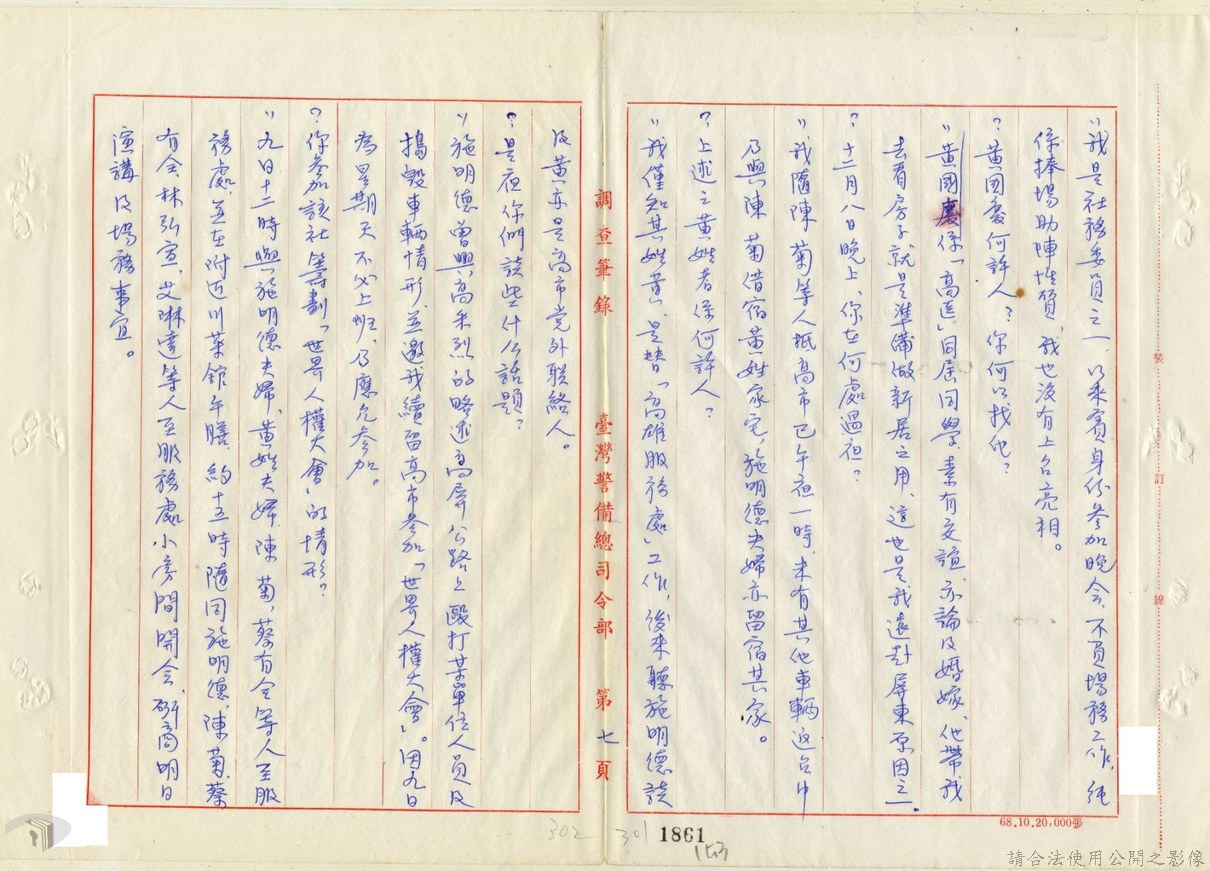 〃我是社務委員之一,以來賓身份參加晚会,不負場務工作,純
係捧場助陣性質,我也沒有上台亮相。
?黃国慶何許人?你何以找他?
〃黃國慶係「高医」同居同學,素有交誼,亦論及婚嫁、他帶我
去看房子就是準備做新居之用,這也是我遠赴屏東原因之一。
?十二月八日晚上、你在何處過夜?
〃我隨陳菊等人抵高市已午夜一時,未有其他車輛返台中
乃與陳菊借宿黃姓家宅,施明德夫婦亦留宿其家。
?上述之黃姓者係何許人?
〃我僅知其姓黃,是替「高雄服務處」工作,後來聽施明德談
及黃亦是高市党外联絡人。
?是夜你們談些什么話題?
〃施明德曾興高采烈的略述高屏公路上毆打某單位人員及
搗毀車輛情形,並邀我續留高市參加「世界人權大會」。因九日
為星期天不必上班,乃應允參加。
?你參加該社籌劃「世界人權大會」的情形?
〃九日十二時與施明德夫婦、黃姓夫婦、陳菊,蔡有全等人至服
務處,並在附近川菜館午膳,約十五時隨同施明德、陳菊、蔡
有全、林弘宣、艾琳達等人至服務處小房間開会,研商明日
演講及場務事宜。
調查筆錄 臺灣警備總司令部 第七頁
裝 訂 線
68.10.20,000張
302 301 1861
請合法使用公開之影像